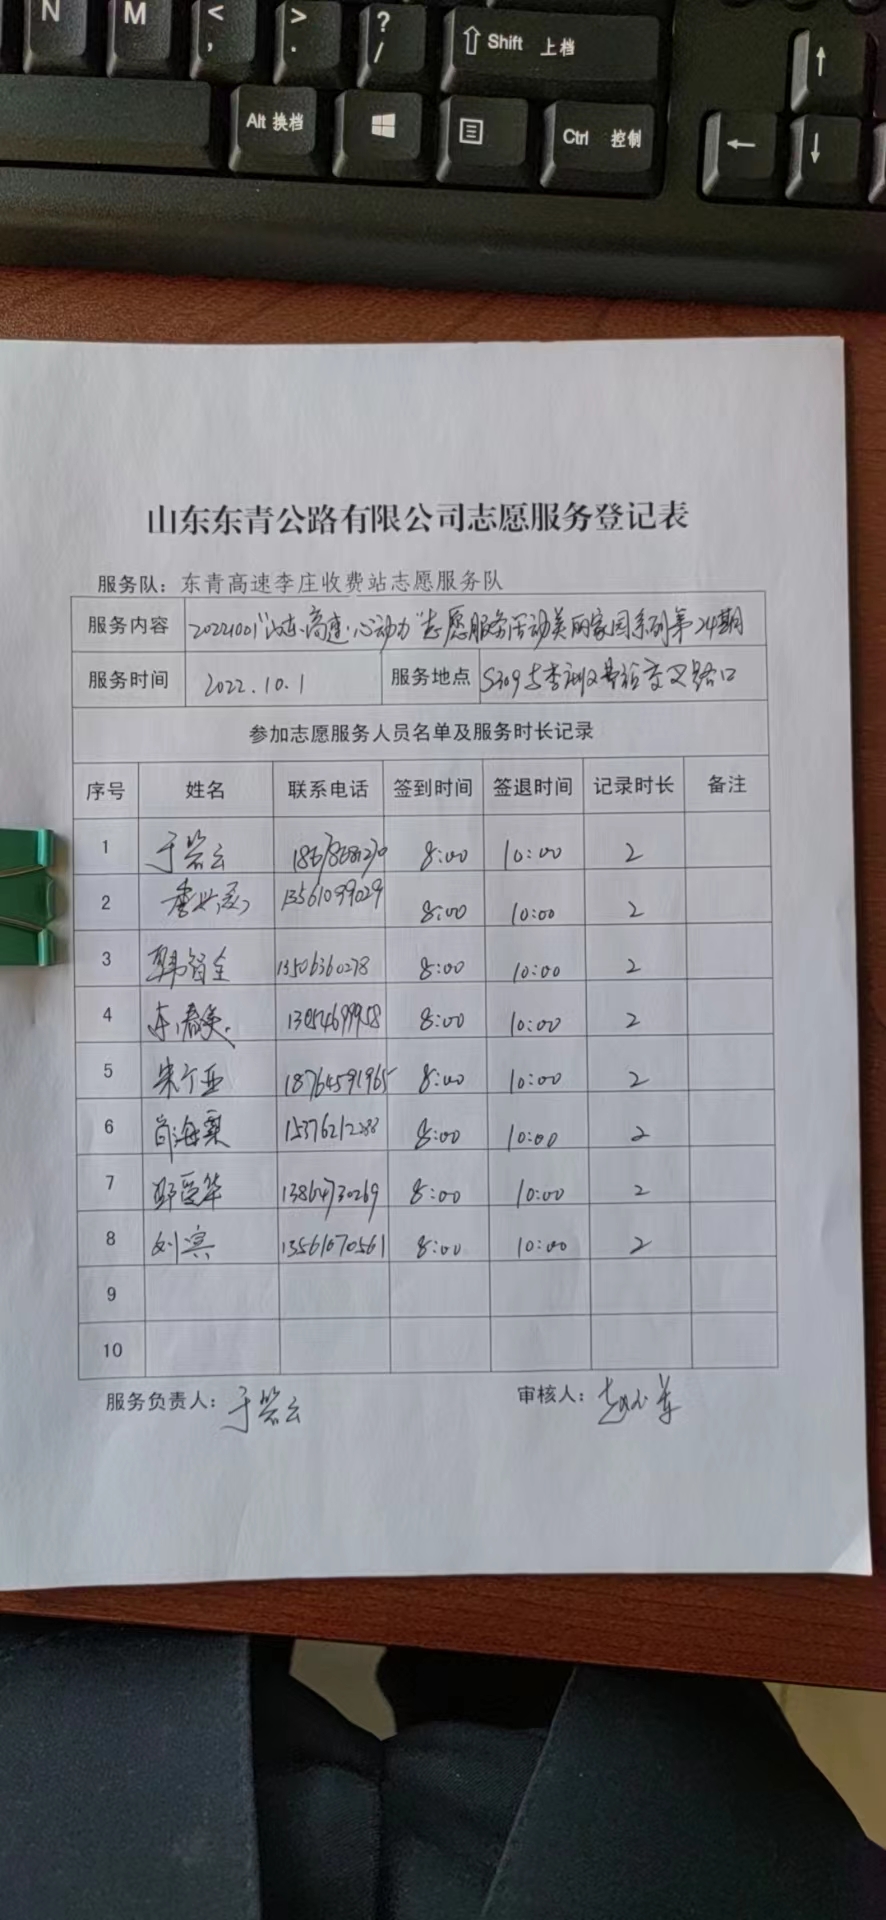 N M < , > . ? / Shift 上档 ↑
Alt 换档 Ctrl 控制 ← ↓
山东东青公路有限公司志愿服务登记表
服务队：东青高速李庄收费站志愿服务队
服务内容 20221001 高速·心动力"志愿服务活动美丽家园系列第24期
服务时间 2022.10.1 服务地点 S309与李 收费站交叉路口
参加志愿服务人员名单及服务时长记录
序号 姓名 联系电话 签到时间 签退时间 记录时长 备注
1 8:00 10:00 2
2 13561099029 8:00 10:00 2
3 韩智全 13506360278 8:00 10:00 2
4 8:00 10:00 2
5 18764591965 8:00 10:00 2
6 15376212288 8:00 10:00 2
7 郭爱华 13864730269 8:00 10:00 2
8 刘滨 13561070561 8:00 10:00 2
9
10
服务负责人： 审核人：